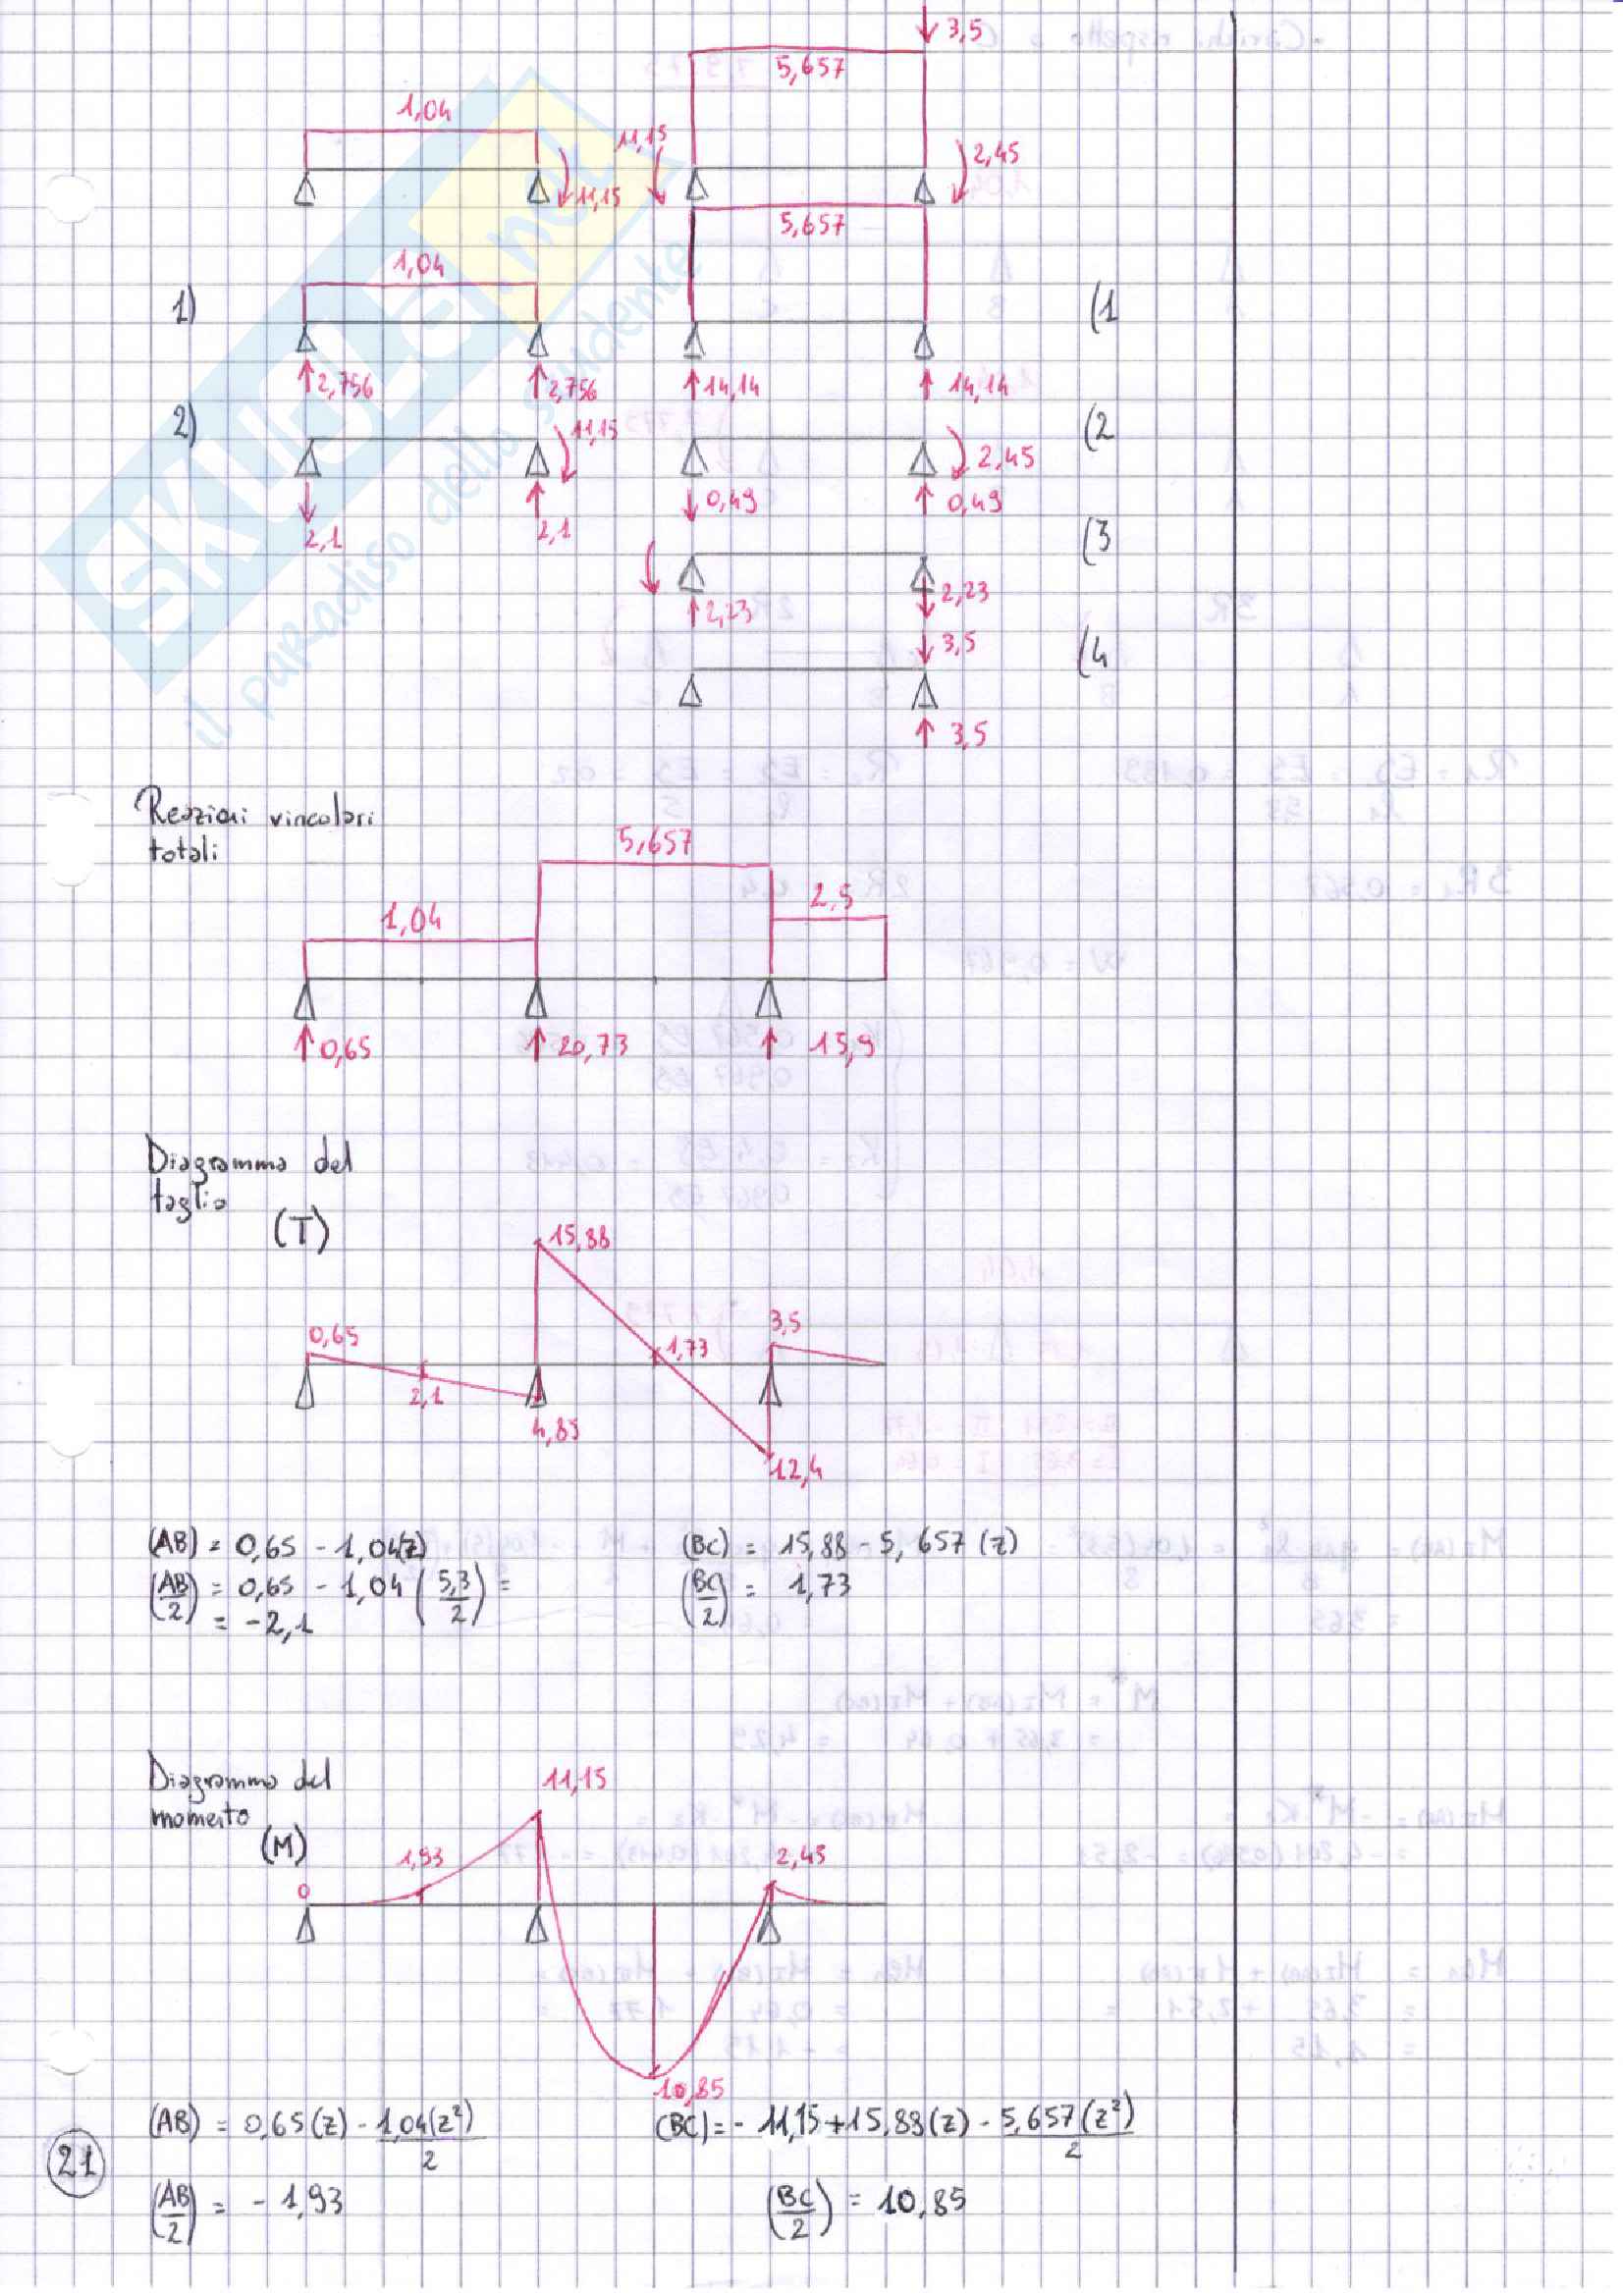 3,5
5,657
1,04
11,15
11,15
2,45
5,657
1,04
1)
(1
2,756
2,756
14,14
14,14
2)
11,15
(2
2,45
0,49
0,49
2,1
2,1
(3
2,23
2,23
3,5
(4
3,5
Reazioni vincolari
totali
5,657
2,5
1,04
0,65
20,73
15,9
Diagramma del
taglio
(T)
15,88
0,65
3,5
1,73
2,1
4,85
12,4
(AB) = 0,65 - 1,04(z)
(BC) = 15,88 - 5,657 (z)
(AB/2) = 0,65 - 1,04 (5,3/2) =
(BC/2) = 1,73
= -2,1
Diagramma del
momento
(M)
11,15
1,93
2,45
0
10,85
(AB) = 0,65(z) - 1,04(z²)/2
(BC) = - 11,15 + 15,88(z) - 5,657(z²)/2
21
(AB/2) = - 1,93
(BC/2) = 10,85
SKUOLA.net
il paradiso dello studente